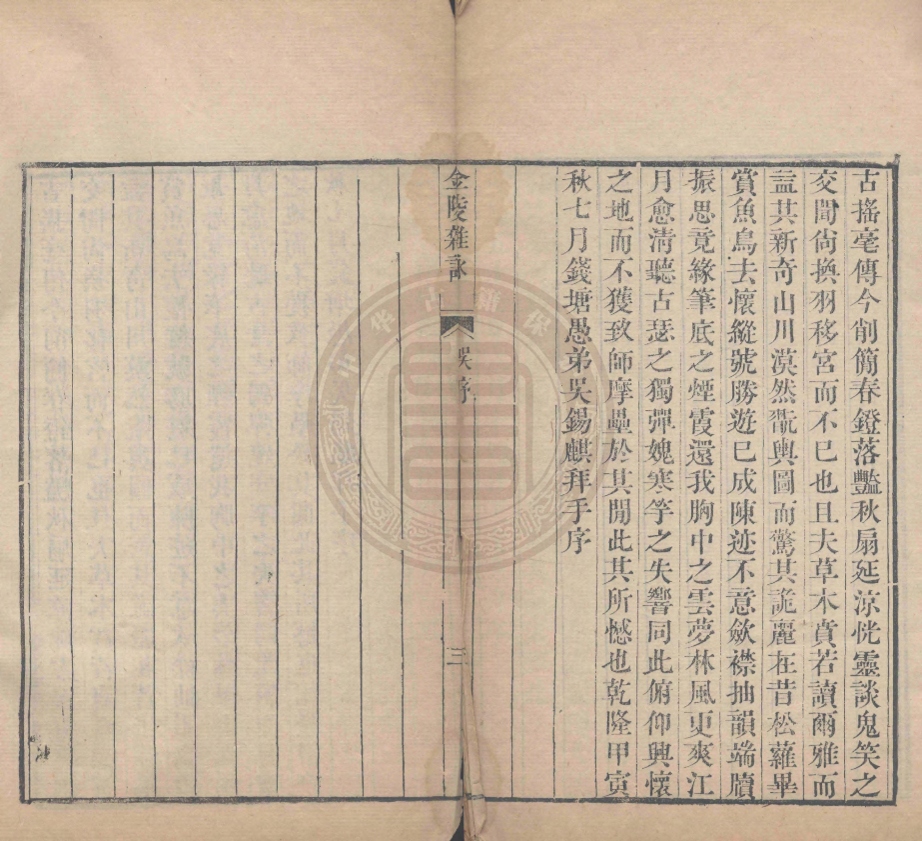 古搖毫傳今削簡春鐙落豔秋扇延涼恍靈談鬼笑之
交閒尙換羽移宮而不已也且夫草木賁若讀爾雅而
益其新奇山川漠然覽輿圖而驚其詭麗在昔松蘿畢
賞魚鳥去懷縱號勝遊已成陳迹不意斂襟抽韻端牘
振思竟緣筆底之煙霞還我胸中之雲夢林風更爽江
月愈淸聽古瑟之獨彈媿寒竽之失響同此俯仰興懷
之地而不獲致師摩壘於其閒此其所憾也乾隆甲寅
秋七月錢塘愚弟吳錫麒拜手序
金陵雜詠
吳序
三